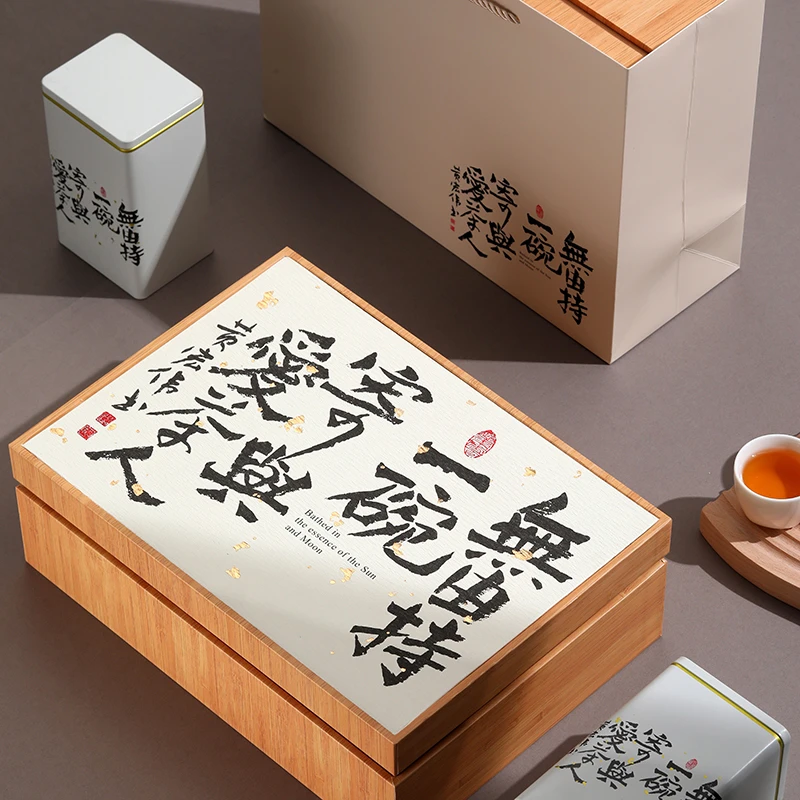 無由持
一碗
寄與
愛茶人
黄宏偉书
無由持
一碗
寄與
愛茶人
黄宏偉书
無由持
一碗
寄與
愛茶人
黄宏偉书
Bathed in
the essence of the Sun
and Moon
一碗
寄與
愛茶人